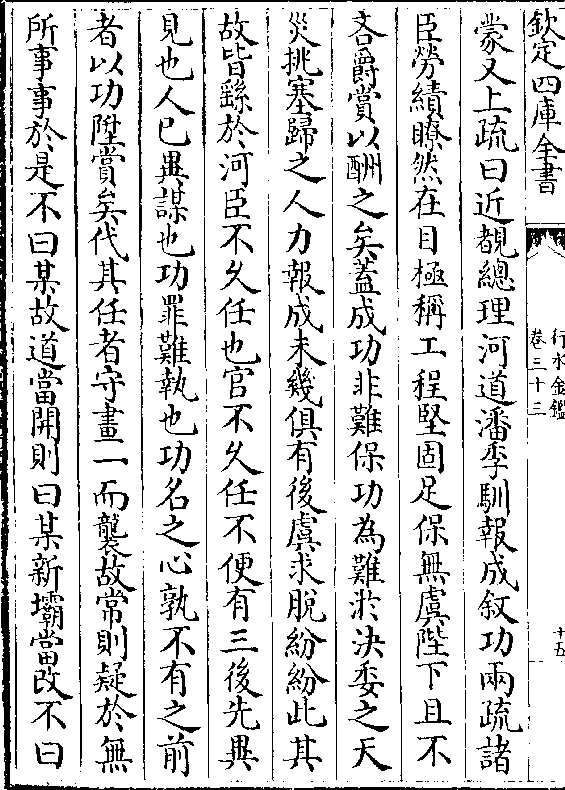 欽定四庫全書
行水金鑑
卷三十三
十五
蒙又上疏曰近覩總理河道潘季馴報成叙功兩疏諸
臣勞績瞭然在目極稱工程堅固足保無虞陛下且不
吝爵賞以酬之矣蓋成功非難保功為難於決委之天
災挑塞歸之人力報成未幾俱有後虞求脫紛紛此其
故皆繇於河臣不久任也官不久任不便有三後先異
見也人已異謀也功罪難執也功名之心孰不有之前
者以功陞賞矣代其任者守畫一而襲故常則疑於無
所事事於是不曰某故道當開則曰某新壩當改不曰